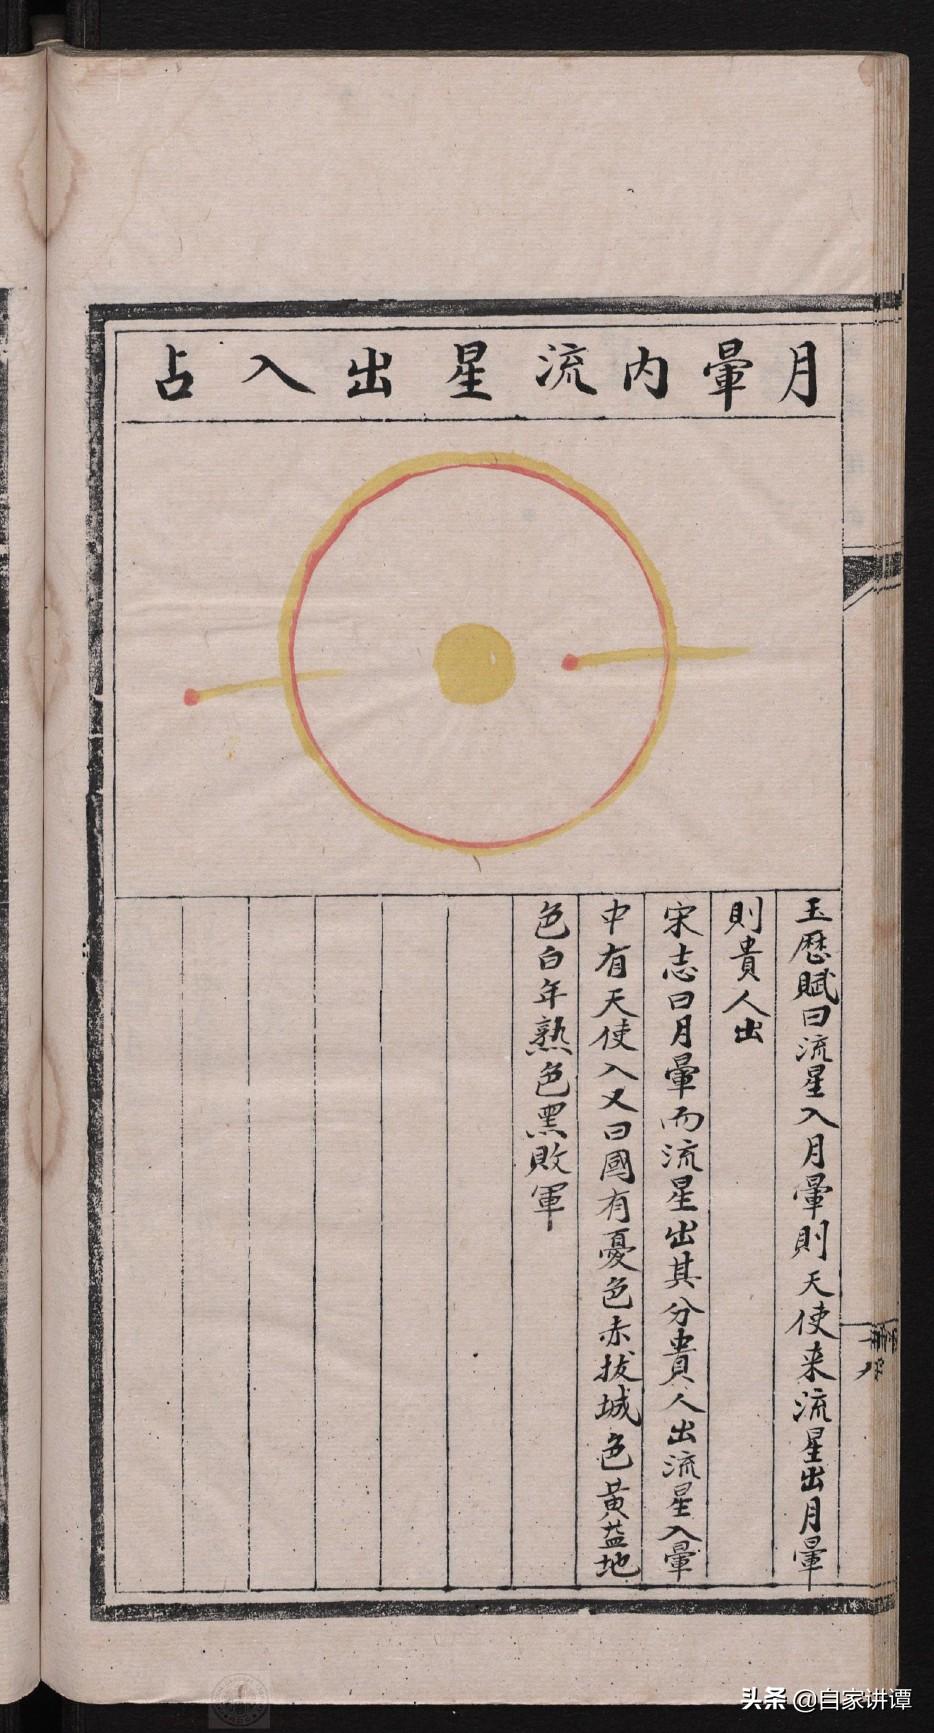 月暈内流星出入占
玉歷賦曰流星入月暈則天使来流星出月暈
則貴人出
宋志曰月暈而流星出其分貴人出流星入暈
中有天使入又曰國有憂色赤拔城色黄益地
色白年熟色黑敗軍
头条 @自家讲谭